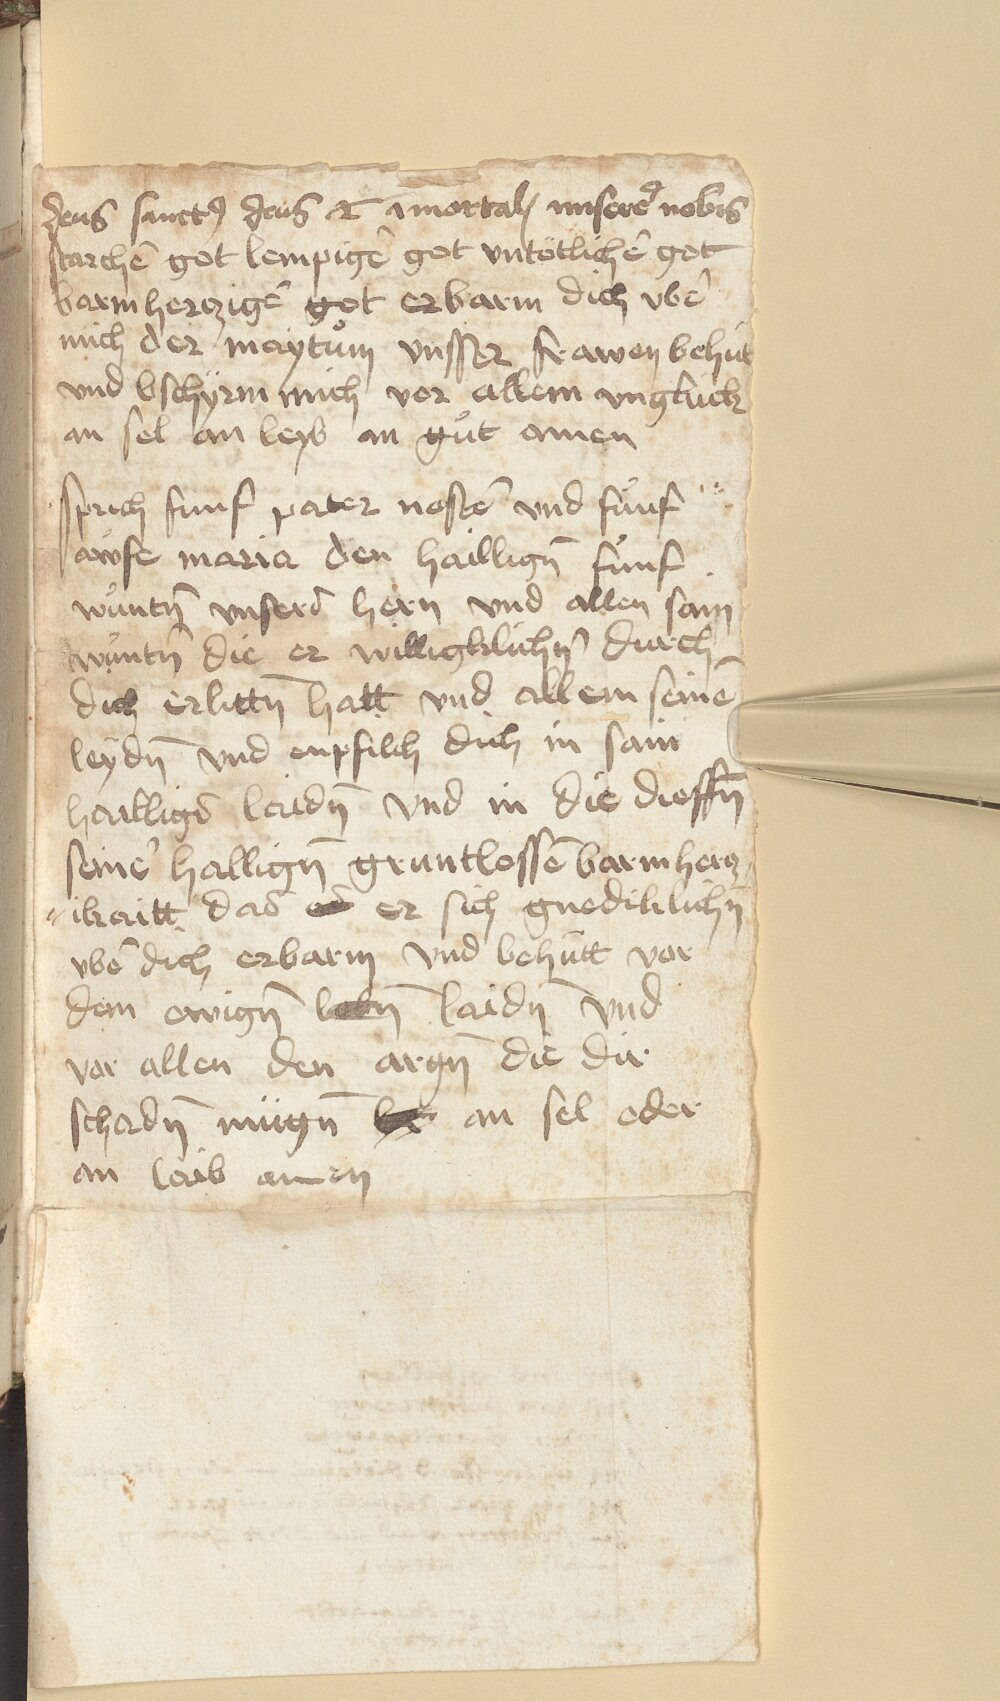 deus sanctꝰ deus et imortalꝭ miserere nobis
starchē got lempigē got vntötlichē got
barmherczigē got erbarm dich vbē
mich der maytům vnsser frawen behüt
vnd bschÿrm mich vor allem vnglück
an sel an leyb an gůt amen
sprich funf pater nostē vnd fůnf
awfe maria den hailligñ fůnf
wůntñ vnserß hern vnd allen sain
wůntñ die er willigklichñ durch
dich erlittñ hatt vnd allem seinē
leÿdñ vnd enpfilch dich in sain
hailligß laidñ vnd in die dieffñ
seinē halligñ gruntlossē barmhercz
ikaitt das er sich gnediklichñ
vbē dich erbarm vnd behütt vor
dem ewigñ laidñ vnd
vor allen den argñ die dir
schadñ mügñ an sel oder
an laib amen